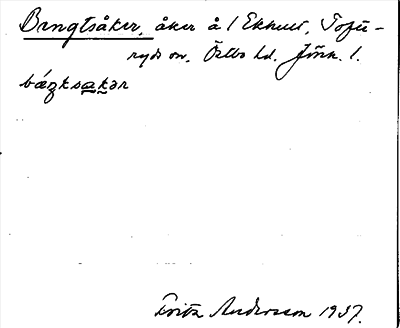 Bengtsåker, åker å 1 Ekhult, Tofte-
ryds sn, Östbo hd. Jönk. l.
báŋksakər
Fritz Andersson 1937.